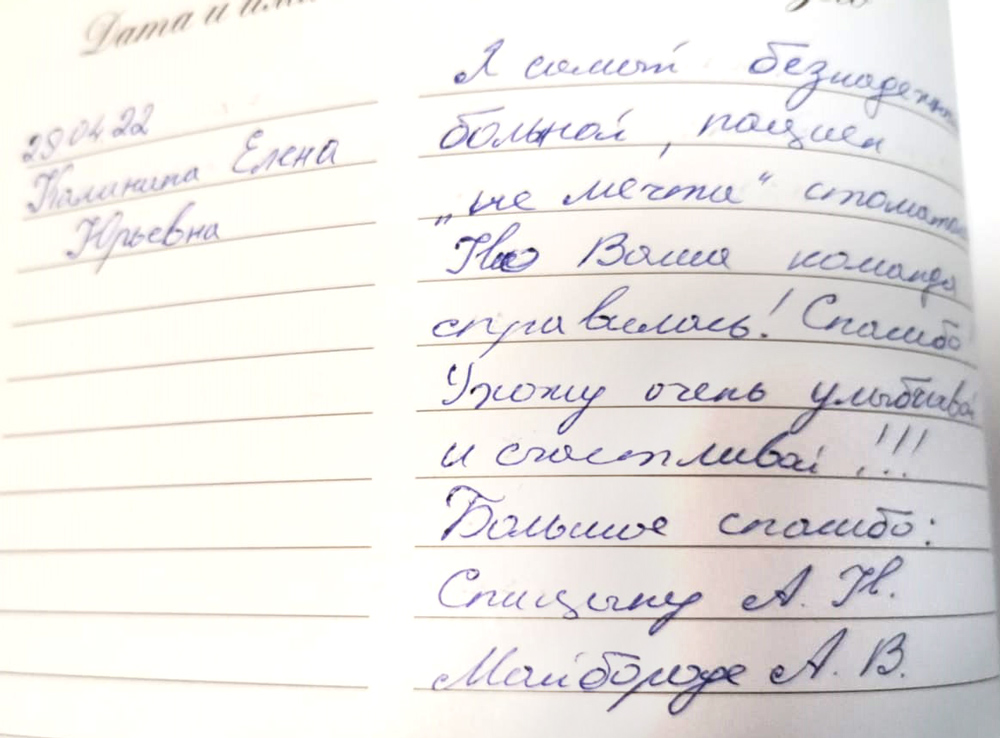 Дата и
29.04.22
Калинина Елена
Юрьевна
Я самый безнадежный
больной, пациен
„не мечта“ стомато
Но Ваша команда
справилась! Спасибо
Ухожу очень улыбчивой
и счастливой!!!
Большое спасибо:
Спицыну А. Н.
Майбороде А. В.